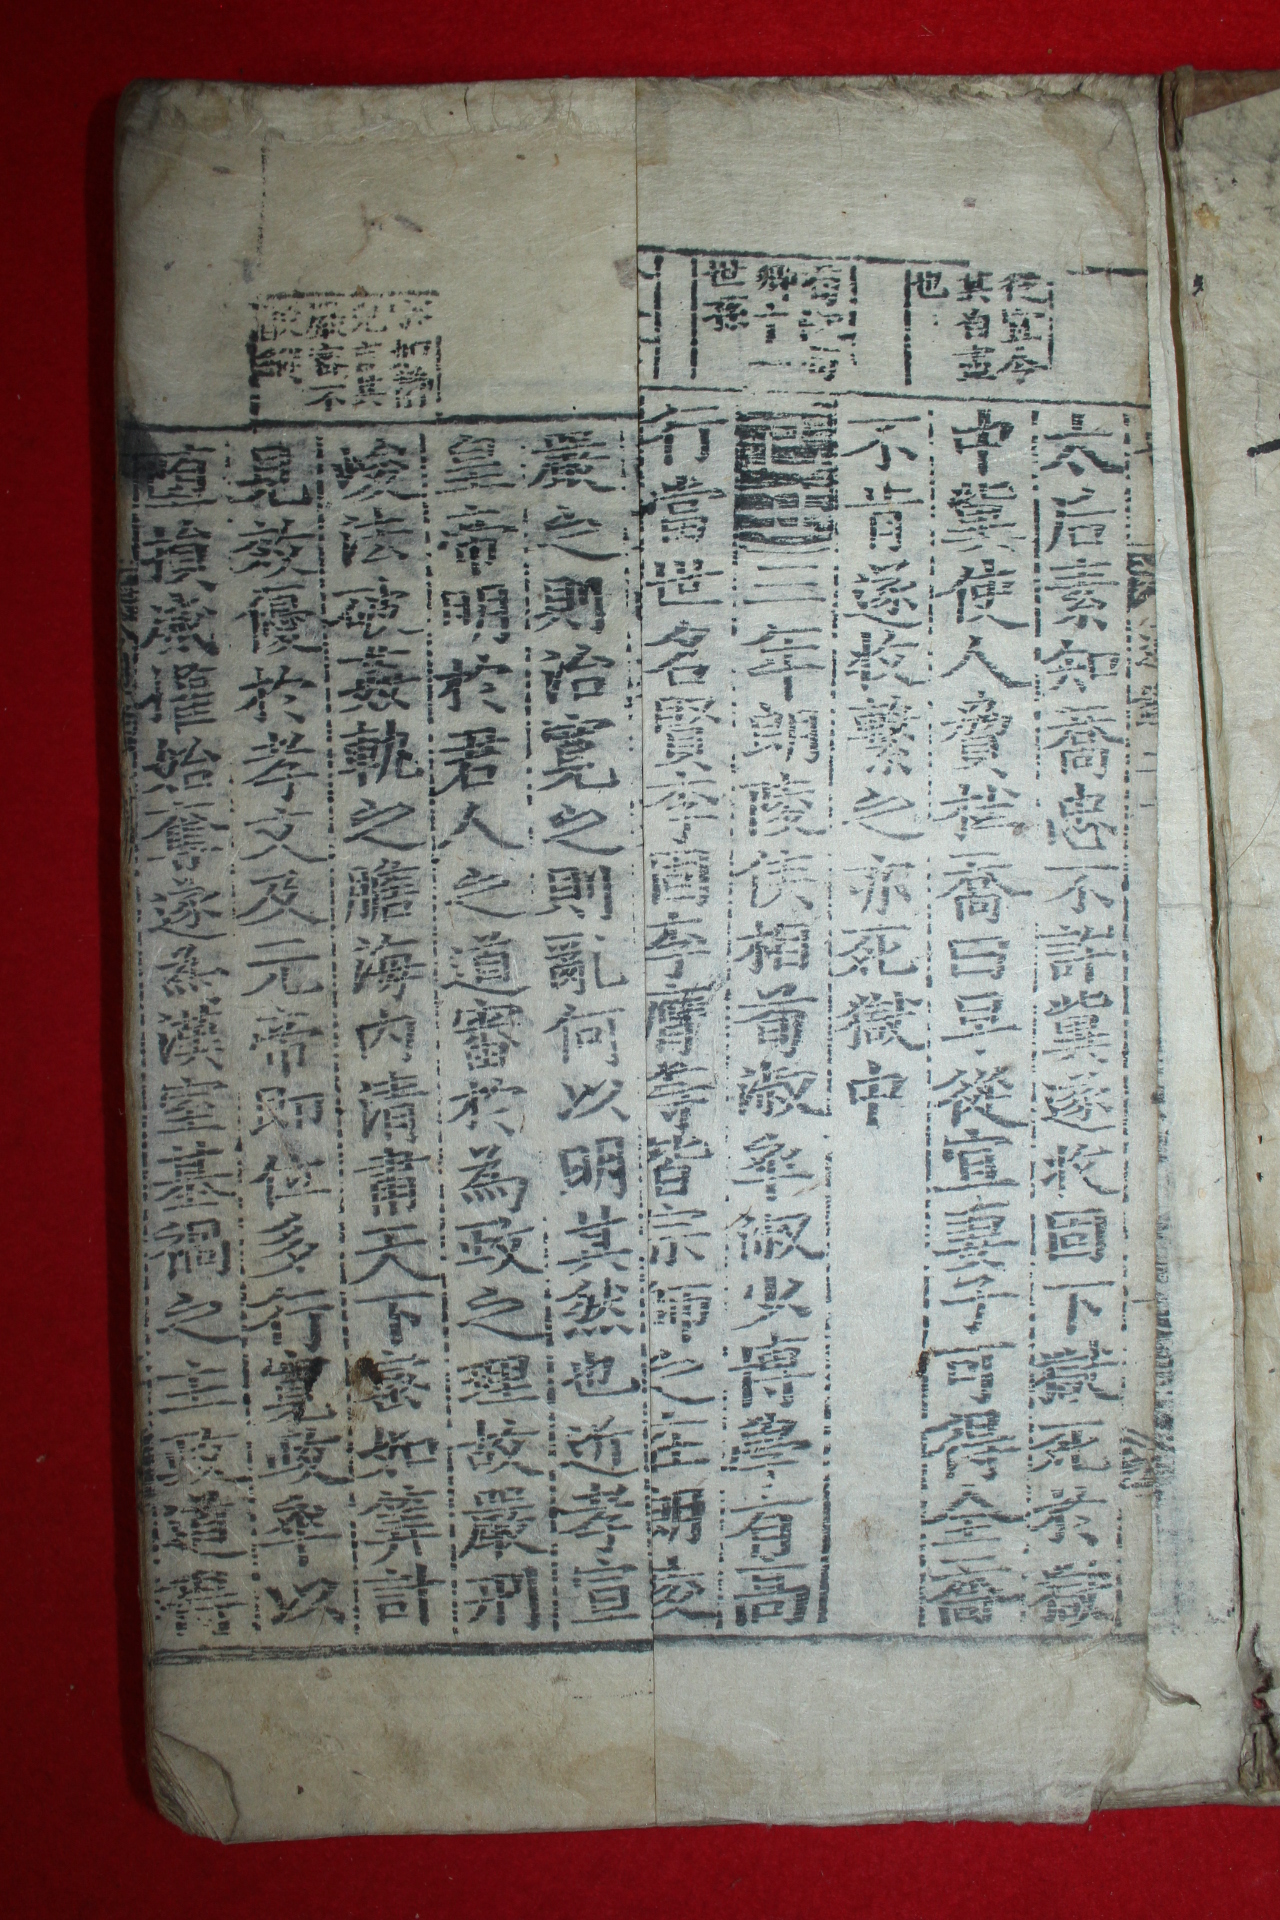 從宜令
其自盡
也
卿十一
世孫
太后素知喬忠不許冀遂收固下獄死於獄
中冀使人脅杜喬曰早從宜妻子可得全喬
不肯遂收繫之亦死獄中
己丑三年朗陵侯相荀淑卒淑少博學有高
行當世名賢李固李膺等皆宗師之在朗陵
言其
嚴密不
嚴之則治寬之則亂何以明其然也近孝宣
皇帝明於君人之道審於為政之理故嚴刑
峻法破姦軌之膽海內清肅天下密如筭計
見效優於孝文及元帝即位多行寬政卒以
墮損威權始奪遂為漢室基禍之主政道得